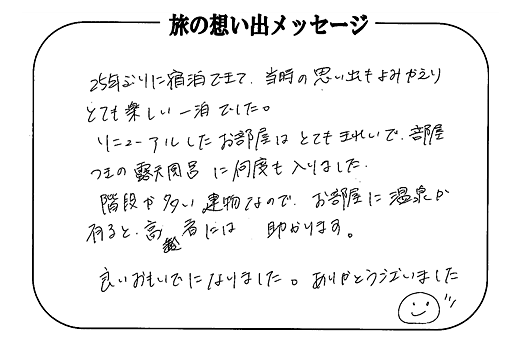 旅の想い出メッセージ
25年ぶりに宿泊できて、当時の思い出もよみがえり
とても楽しい一泊でした。
リニューアルしたお部屋はとてもきれいで、部屋
つきの露天風呂に何度も入りました。
階段が多い建物なので、お部屋に温泉が
有ると、高齢者には 助かります。
良いおもいでになりました。ありがとうございました